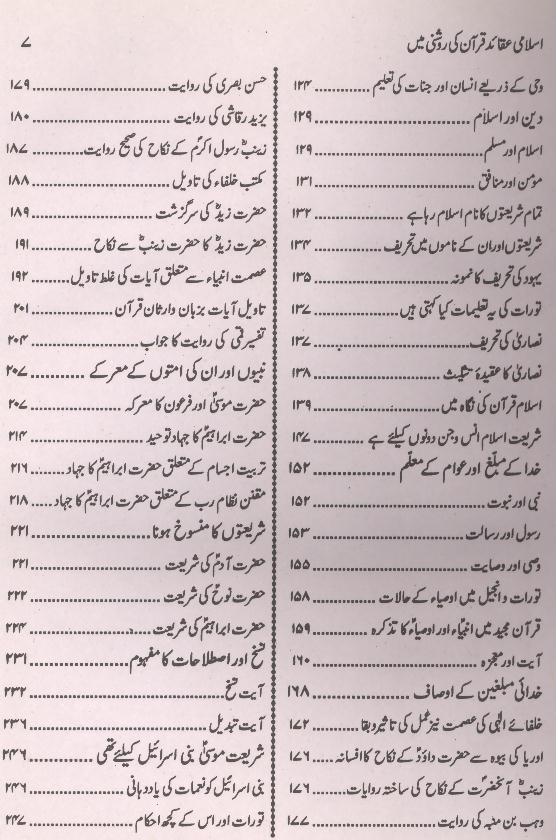 اسلامی عقائد قرآن کی روشنی میں ۷
وحی کے ذریعے انسان اور جنات کی تعلیم ............ ۱۲۴
دین اور اسلام ............ ۱۲۹
اسلام اور مسلم ............ ۱۲۹
مؤمن اور منافق ............ ۱۳۱
تمام شریعتوں کا نام اسلام رہا ہے ............ ۱۳۲
شریعتوں اور ان کے ناموں میں تحریف ............ ۱۳۴
یہود کی تحریف کا نمونہ ............ ۱۳۵
تورات کی یہ تعلیمات کیا کہتی ہیں ............ ۱۳۷
نصاریٰ کی تحریف ............ ۱۳۷
نصاریٰ کا عقیدۂ تثلیث ............ ۱۳۸
اسلام قرآن کی نگاہ میں ............ ۱۳۹
شریعت اسلام انس و جن دونوں کیلئے ہے ............ ۱۴۷
خدا کے مبلّغ اور عوام کے معلّم ............ ۱۵۲
نبی اور نبوت ............ ۱۵۲
رسول اور رسالت ............ ۱۵۳
وصی اور وصایت ............ ۱۵۵
تورات و انجیل میں اوصیاء کے حالات ............ ۱۵۸
قرآن مجید میں انبیاء اور اوصیاء کا تذکرہ ............ ۱۵۹
آیت اور معجزہ ............ ۱۶۰
خدائی مبلغین کے اوصاف ............ ۱۶۸
خلفائے الٰہی کی عصمت نیز عمل کی تاثیر و بقا ............ ۱۷۲
اوریا کی بیوہ سے حضرت داؤدؑ کے نکاح کا افسانہ ............ ۱۷۶
زینبؓ آنحضرتؐ کے نکاح کی ساختہ روایات ............ ۱۷۶
وہب بن منبہ کی روایت ............ ۱۷۷
حسن بصری کی روایت ............ ۱۷۹
یزید رقاشی کی روایت ............ ۱۸۰
زینبؓ رسول اکرمؐ کے نکاح کی صحیح روایت ............ ۱۸۷
مکتب خلفاء کی تاویل ............ ۱۸۸
حضرت زیدؓ کی سرگزشت ............ ۱۸۹
حضرت زیدؓ کا حضرت زینبؓ سے نکاح ............ ۱۹۱
عصمت انبیاء سے متعلق آیات کی غلط تاویل ............ ۱۹۲
تاویل آیات بزبان وارثان قرآن ............ ۲۰۱
تفسیر قمی کی روایت کا جواب ............ ۲۰۴
نبیوں اور ان کی امتوں کے معرکے ............ ۲۰۷
حضرت موسیٰؑ اور فرعون کا معرکہ ............ ۲۰۷
حضرت ابراہیمؑ کا جہاد توحید ............ ۲۱۴
تربیت اجسام کے متعلق حضرت ابراہیمؑ کا جہاد ............ ۲۱۶
مقنن نظام رب کے متعلق حضرت ابراہیمؑ کا جہاد ............ ۲۱۸
شریعتوں کا منسوخ ہونا ............ ۲۲۱
حضرت آدمؑ کی شریعت ............ ۲۲۱
حضرت نوحؑ کی شریعت ............ ۲۲۲
حضرت ابراہیمؑ کی شریعت ............ ۲۲۴
نسخ اور اصطلاحات کا مفہوم ............ ۲۳۱
آیت نسخ ............ ۲۳۲
آیت تبدیل ............ ۲۳۶
شریعت موسیٰؑ بنی اسرائیل کیلئے تھی ............ ۲۴۶
بنی اسرائیل کو نعمات کی یاددہانی ............ ۲۴۶
تورات اور اس کے کچھ احکام ............ ۲۴۷